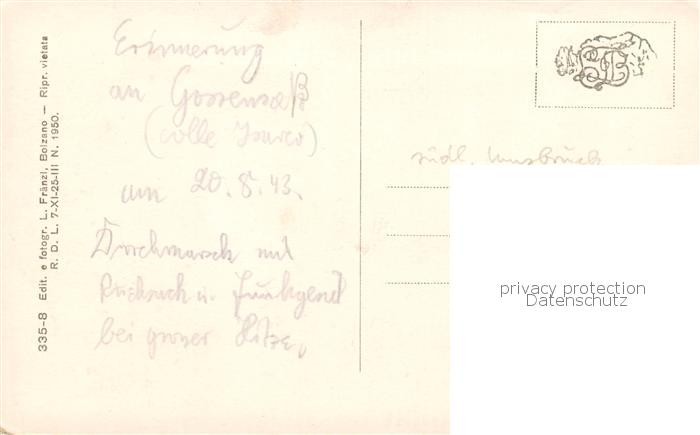 335-8 Edit. e fotogr. L. Fränzl, Bolzano — Ripr. vietata
R. D. L. 7-XI-25-III N. 1950.
Erinnerung
an Gossensaß
(Colle Isarco)
am 20. 8. 43.
Durchmarsch mit
Rucksack u. Funkgerät
bei großer Hitze.
südl. Innsbruck
privacy protection
Datenschutz